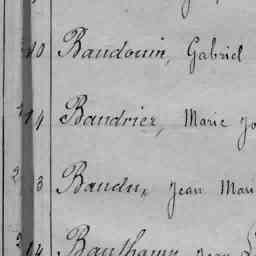 10 Baudouin, Gabriel
14 Baudrier, Marie Jo
2 3 Baudux Jean Mari
14 Bauthamy Jean